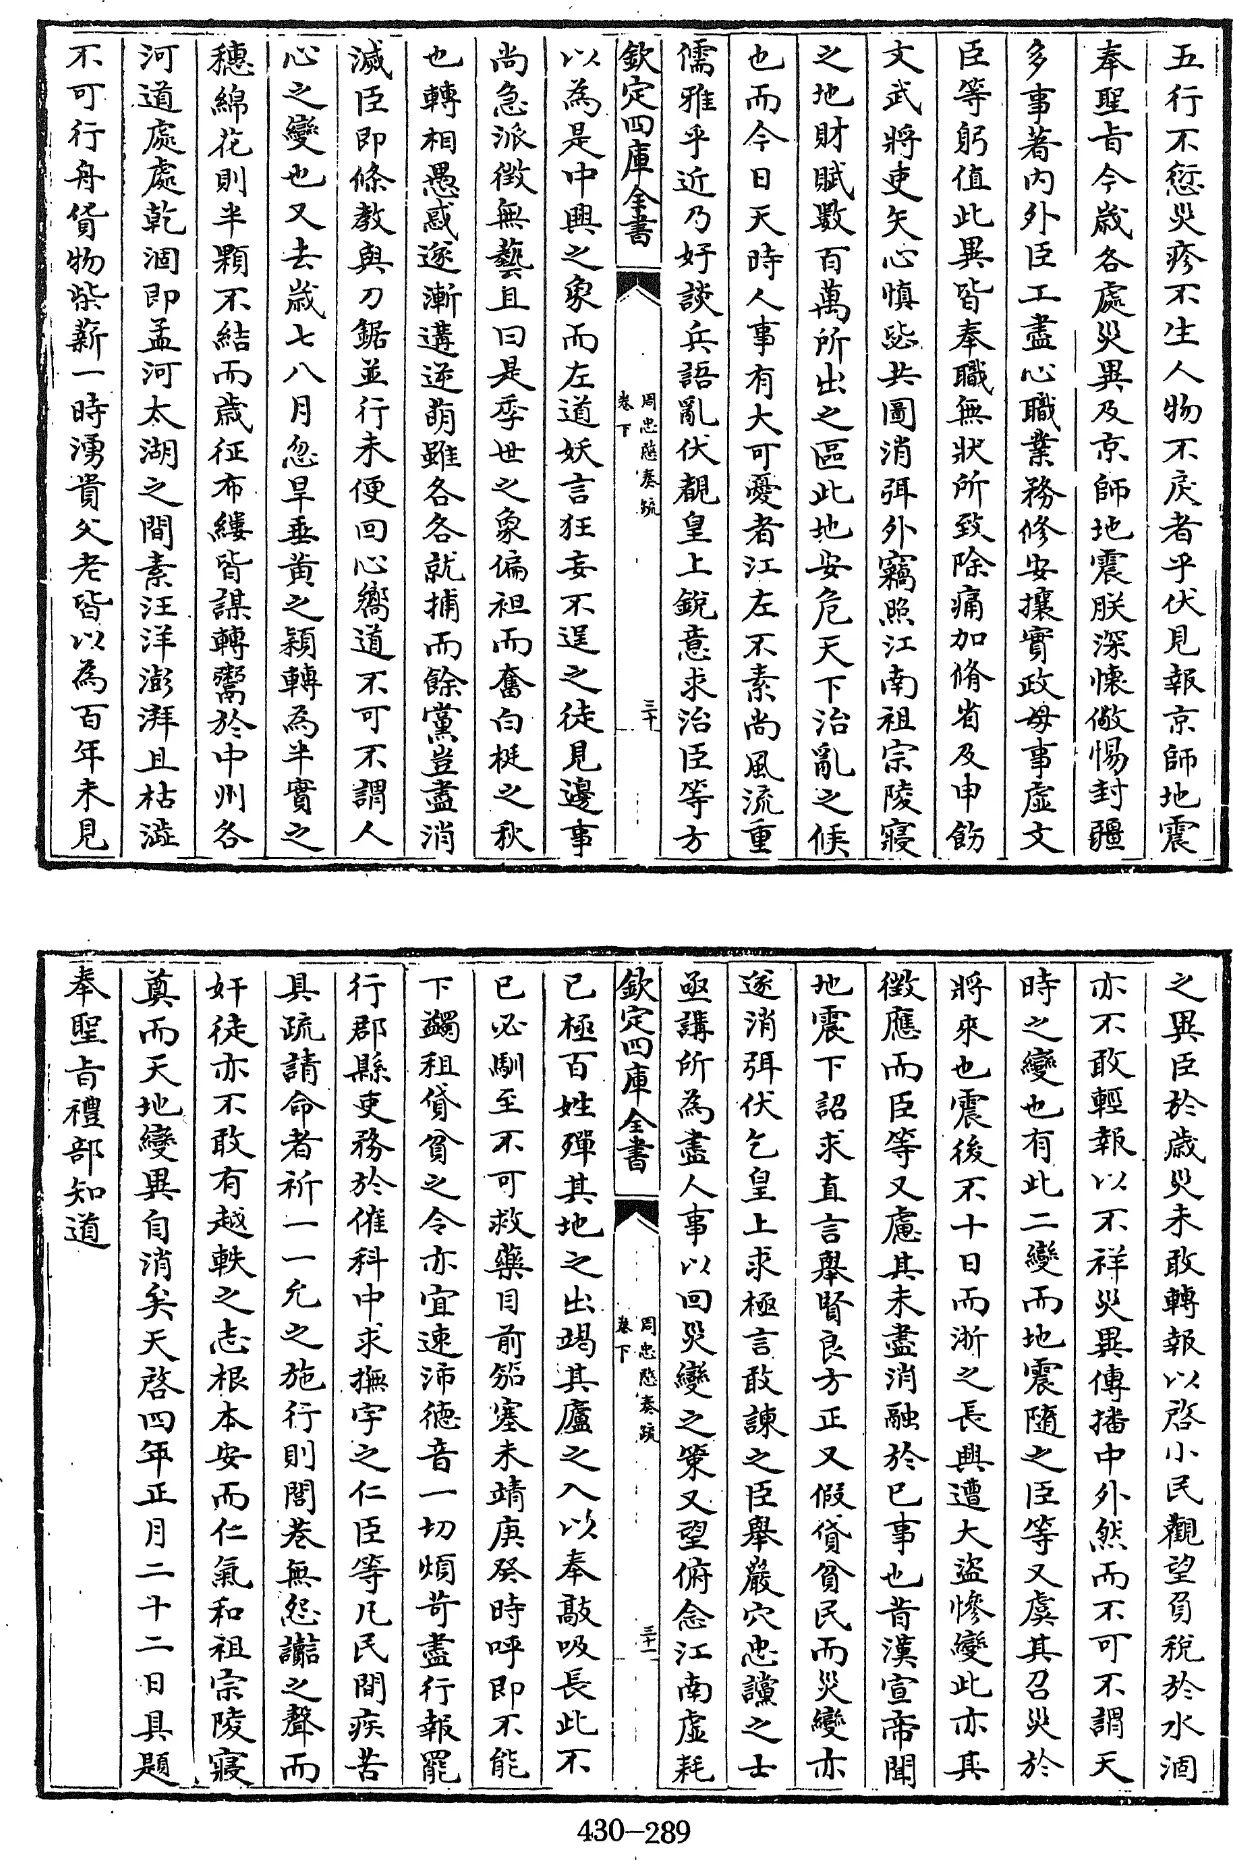 五行不愆災疹不生人物不戾者乎伏見報京師地震
奉聖旨今歲各處災異及京師地震朕深懷儆惕封疆
多事著內外臣工盡心職業務修安攘實政毋事虛文
臣等躬值此異皆奉職無狀所致除痛加脩省及申飭
文武將吏矢心慎毖共圖消弭外竊照江南祖宗陵寢
之地財賦數百萬所出之區此地安危天下治亂之候
也而今日天時人事有大可憂者江左不素尚風流重
儒雅乎近乃好談兵語亂伏覩皇上銳意求治臣等方
欽定四庫全書
周忠愍奏疏
卷下
三十
以為是中興之象而左道妖言狂妄不逞之徒見邊事
尚急派徵無藝且曰是季世之象偏袒而奮白梃之秋
也轉相愚惑遂漸遘逆萌雖各各就捕而餘黨豈盡消
滅臣即條教與刀鋸並行未便回心嚮道不可不謂人
心之變也又去歲七八月忽旱垂黃之穎轉為半實之
穗綿花則半顆不結而歲征布縷皆謀轉鬻於中州各
河道處處乾涸即孟河太湖之間素汪洋澎湃且枯澁
不可行舟貨物柴薪一時湧貴父老皆以為百年未見
之異臣於歲災未敢轉報以啓小民觀望負稅於水涸
亦不敢輕報以不祥災異傳播中外然而不可不謂天
時之變也有此二變而地震隨之臣等又虞其召災於
將來也震後不十日而浙之長興遭大盜慘變此亦其
徵應而臣等又慮其未盡消融於已事也昔漢宣帝聞
地震下詔求直言舉賢良方正又假貸貧民而災變亦
遂消弭伏乞皇上求極言敢諫之臣舉巖穴忠讜之士
亟講所為盡人事以回災變之策又望俯念江南虛耗
欽定四庫全書
周忠愍奏疏
卷下
三十一
已極百姓殫其地之出竭其廬之入以奉敲吸長此不
已必馴至不可救藥目前筎塞未靖庚癸時呼即不能
下蠲租貸貧之令亦宜速沛德音一切煩苛盡行報罷
行郡縣吏務於催科中求撫字之仁臣等凡民間疾苦
具疏請命者祈一一允之施行則閭巷無怨讟之聲而
奸徒亦不敢有越軼之志根本安而仁氣和祖宗陵寢
奠而天地變異自消矣天啓四年正月二十二日具題
奉聖旨禮部知道
430-289